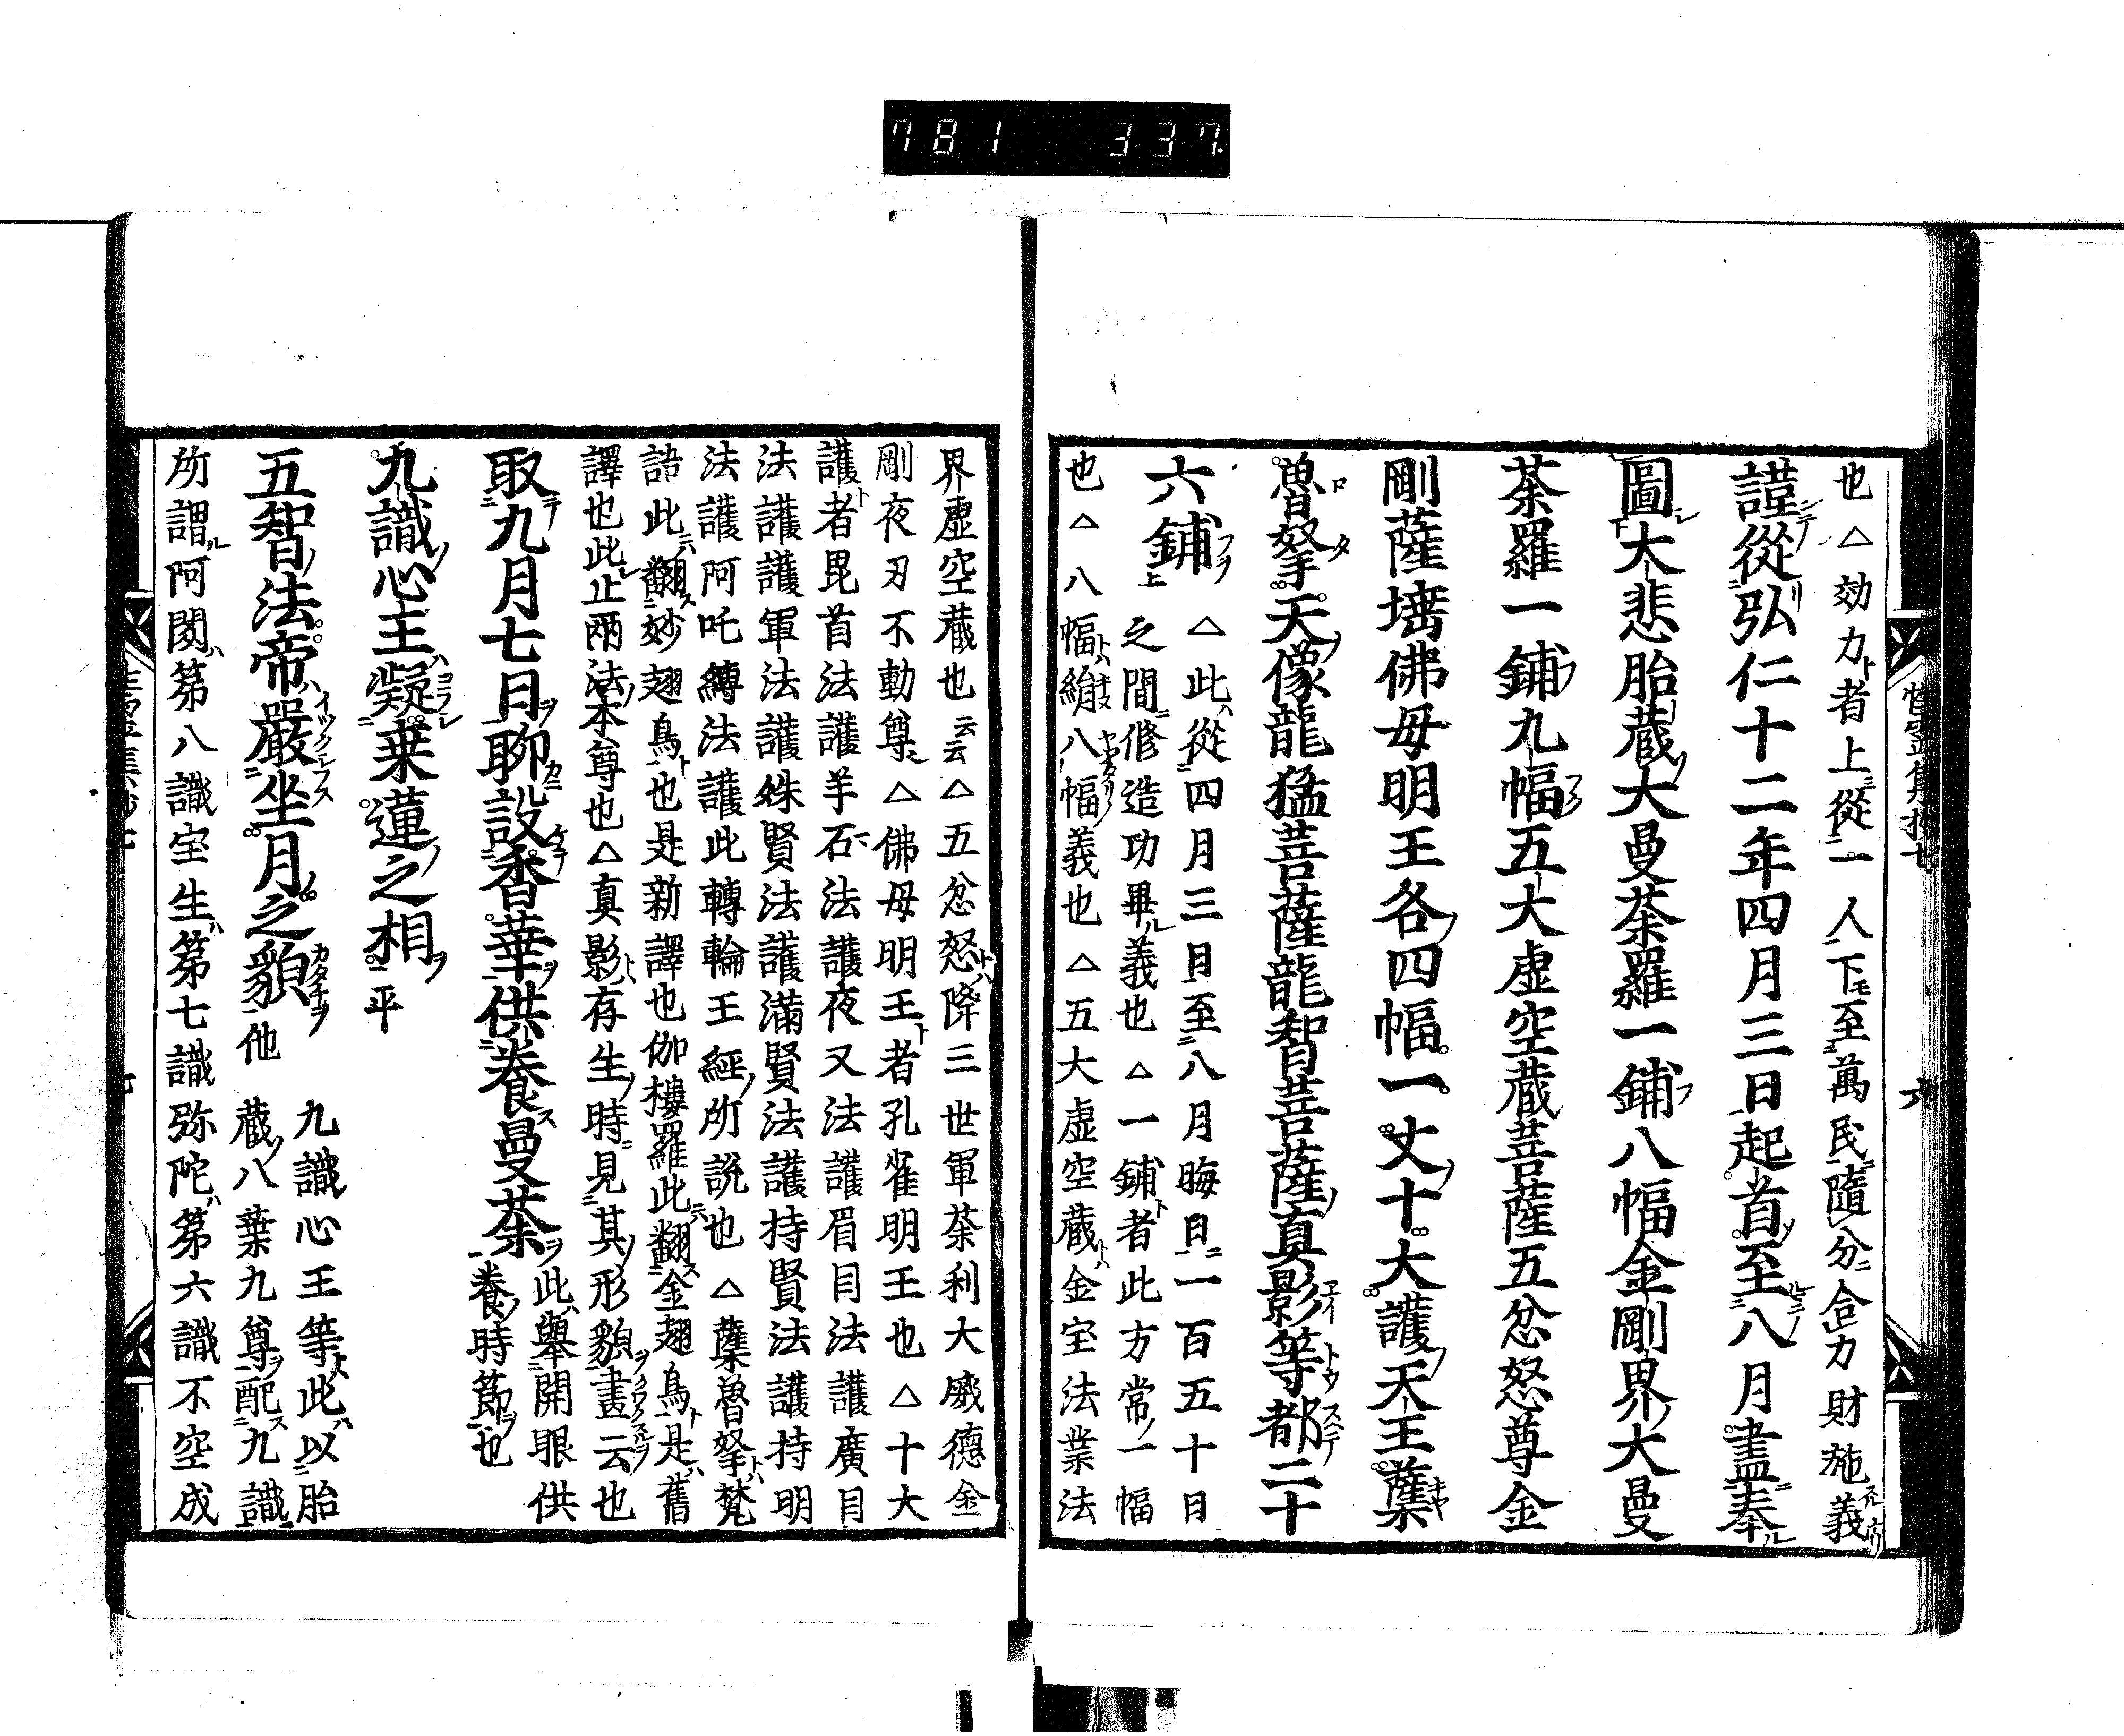 781 337.
也△効力ト者上從一人下至萬民隨分合力財施義
謹從弘仁十二年四月三日起首至八月盡奉
圖大悲胎蔵大曼荼羅一鋪八幅金剛界大曼
荼羅一鋪九幅五大虚空蔵菩薩五忿怒尊金
剛薩埵佛母明王各四幅一丈十大護天王蘗
魯拏天像龍猛菩薩龍智菩薩真影等都二十
六鋪
△此從四月三日至八月晦日一百五十日
之間修造功畢義也△一鋪ト者此方常一幅
也△八幅絹八幅義也△五大虚空蔵金宝法業法
界虚空蔵也云云△五忿怒降三世軍荼利大威德金
剛夜叉不動尊△佛母明王者孔雀明王也△十大
護者毘首法護羊石法護夜叉法護眉目法護廣目
法護護軍法護姝賢法護滿賢法護持賢法護持明
法護阿吒縛法護此轉輪王經所說也△蘗魯拏梵
語此翻妙翅鳥也是新譯也伽樓羅此翻金翅鳥是舊
譯也此止兩法本尊也△真影存生時見其形貌畫云也
取九月七日聊設香華供養曼荼
此舉開眼供
養時節也
九識心王凝乗蓮之相平
五智法帝嚴坐月之貌他
九識心王等此以胎
蔵八葉九尊配九識
所謂阿閦第八識宝生第七識弥陀第六識不空成